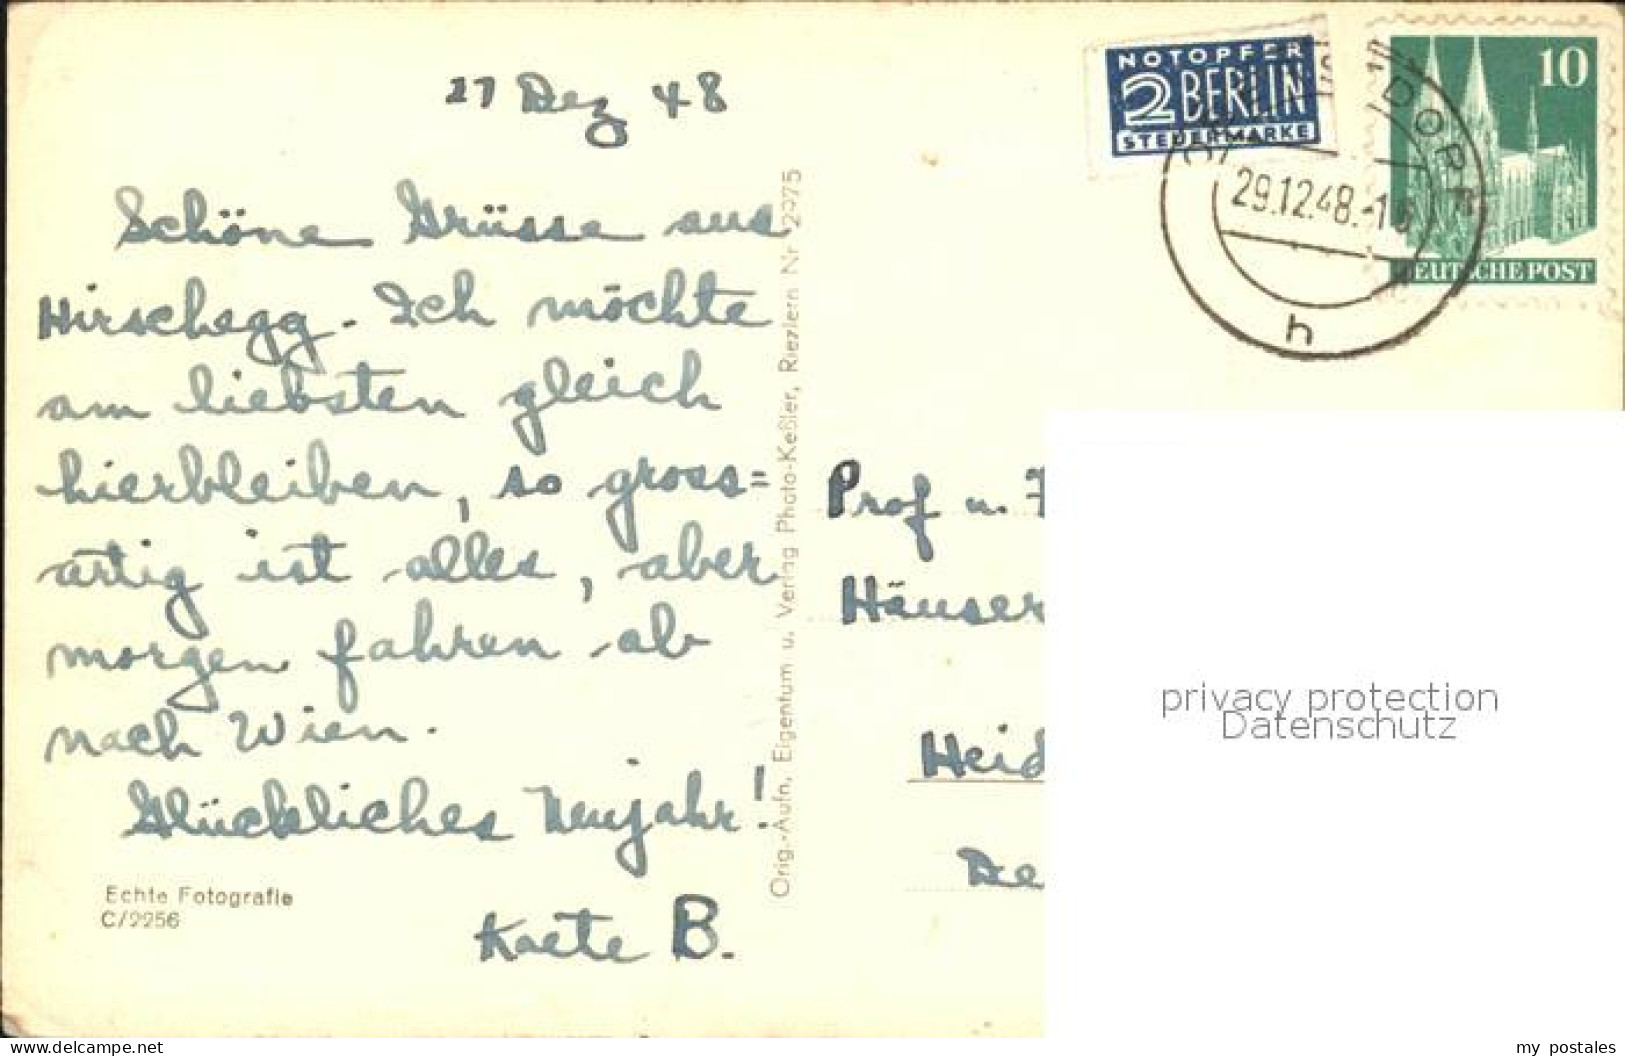 27 Dez 48
Schöne Grüsse aus
Hirschegg. Ich möchte
am liebsten gleich
hierbleiben, so gross=
artig ist alles, aber
morgen fahren ab
nach Wien.
Glückliches Neujahr!
Kaete B.
Echte Fotografie
C/2256
Orig.-Aufn. Eigentum u. Verlag Photo-Keßler, Riezlern Nr. 2975
NOTOPFER
2 BERLIN
STEUERMARKE
10
DEUTSCHE POST
DORF
29.12.48.-1
h
Prof u.
Häuser
Heid
De
privacy protection
Datenschutz
www.delcampe.net
my postales